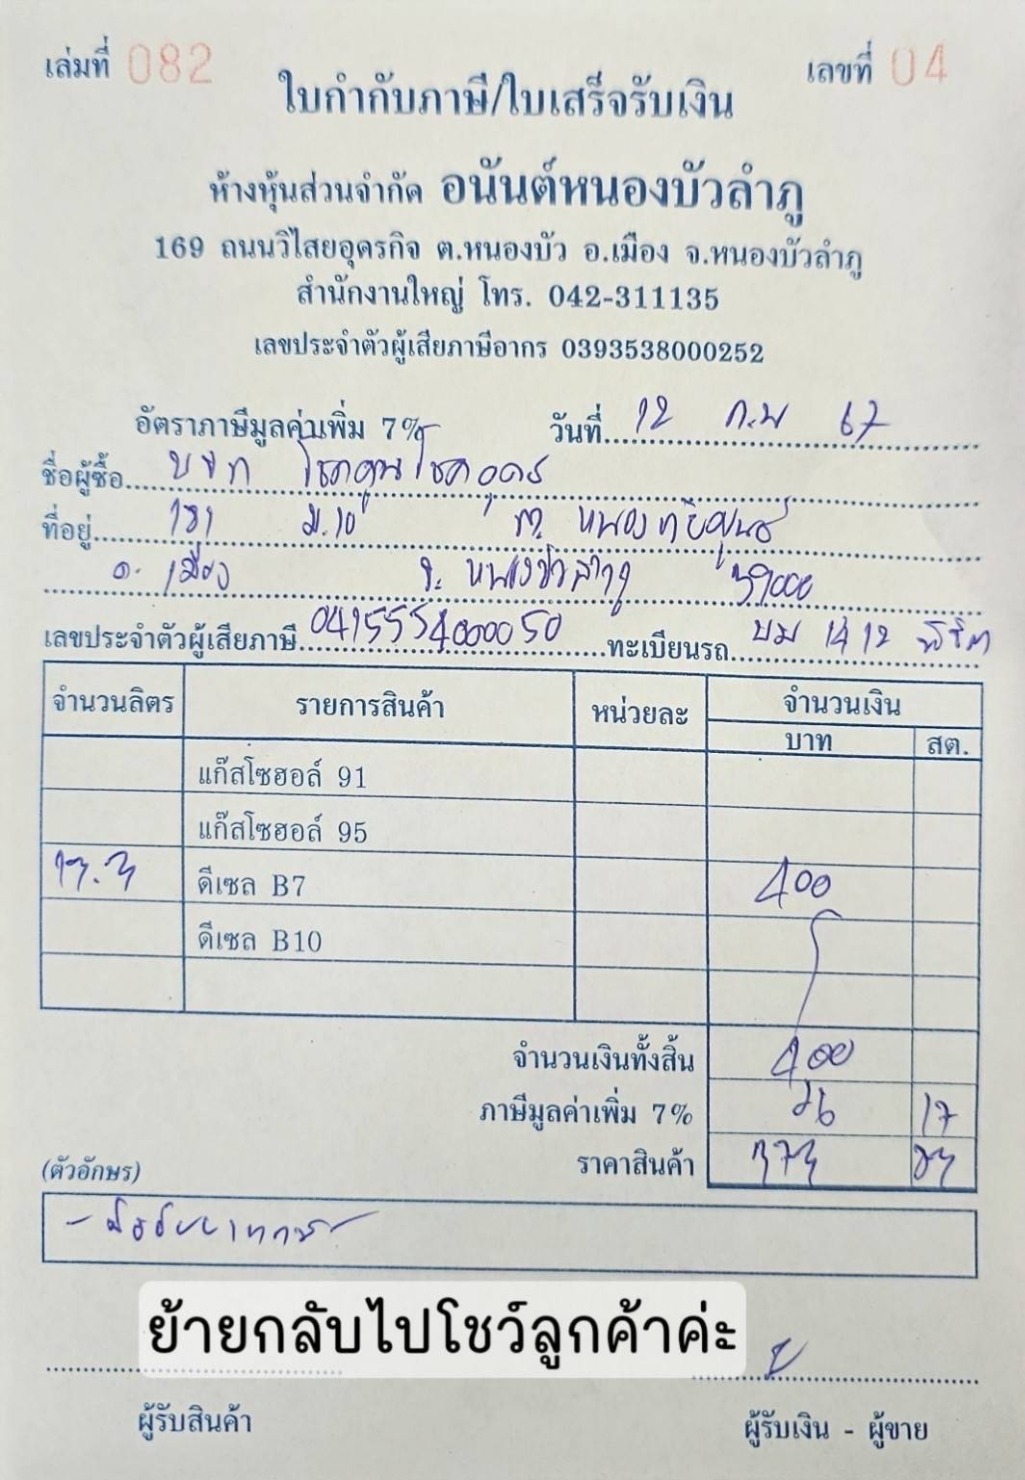 เล่มที่ 082 เลขที่ 04
ใบกำกับภาษี/ใบเสร็จรับเงิน
ห้างหุ้นส่วนจำกัด อนันต์หนองบัวลำภู
169 ถนนวิไสยอุดรกิจ ต.หนองบัว อ.เมือง จ.หนองบัวลำภู
สำนักงานใหญ่ โทร. 042-311135
เลขประจำตัวผู้เสียภาษีอากร 0393538000252
อัตราภาษีมูลค่าเพิ่ม 7% วันที่ 12 ก.พ 67
ชื่อผู้ซื้อ บจก โชคคูณโชคอุดร
ที่อยู่ 181 ม.10 ต.
อ. เมือง จ. หนองบัวลำภู 39000
เลขประจำตัวผู้เสียภาษี 0415554000050 ทะเบียนรถ บม 1412
จำนวนลิตร รายการสินค้า หน่วยละ จำนวนเงิน
บาท สต.
แก๊สโซฮอล์ 91
แก๊สโซฮอล์ 95
13.3 ดีเซล B7 400
ดีเซล B10
จำนวนเงินทั้งสิ้น 400
ภาษีมูลค่าเพิ่ม 7% 26 17
(ตัวอักษร) ราคาสินค้า 373 83
- สี่ร้อยบาทถ้วน -
ย้ายกลับไปโชว์ลูกค้าค่ะ
ผู้รับสินค้า ผู้รับเงิน - ผู้ขาย